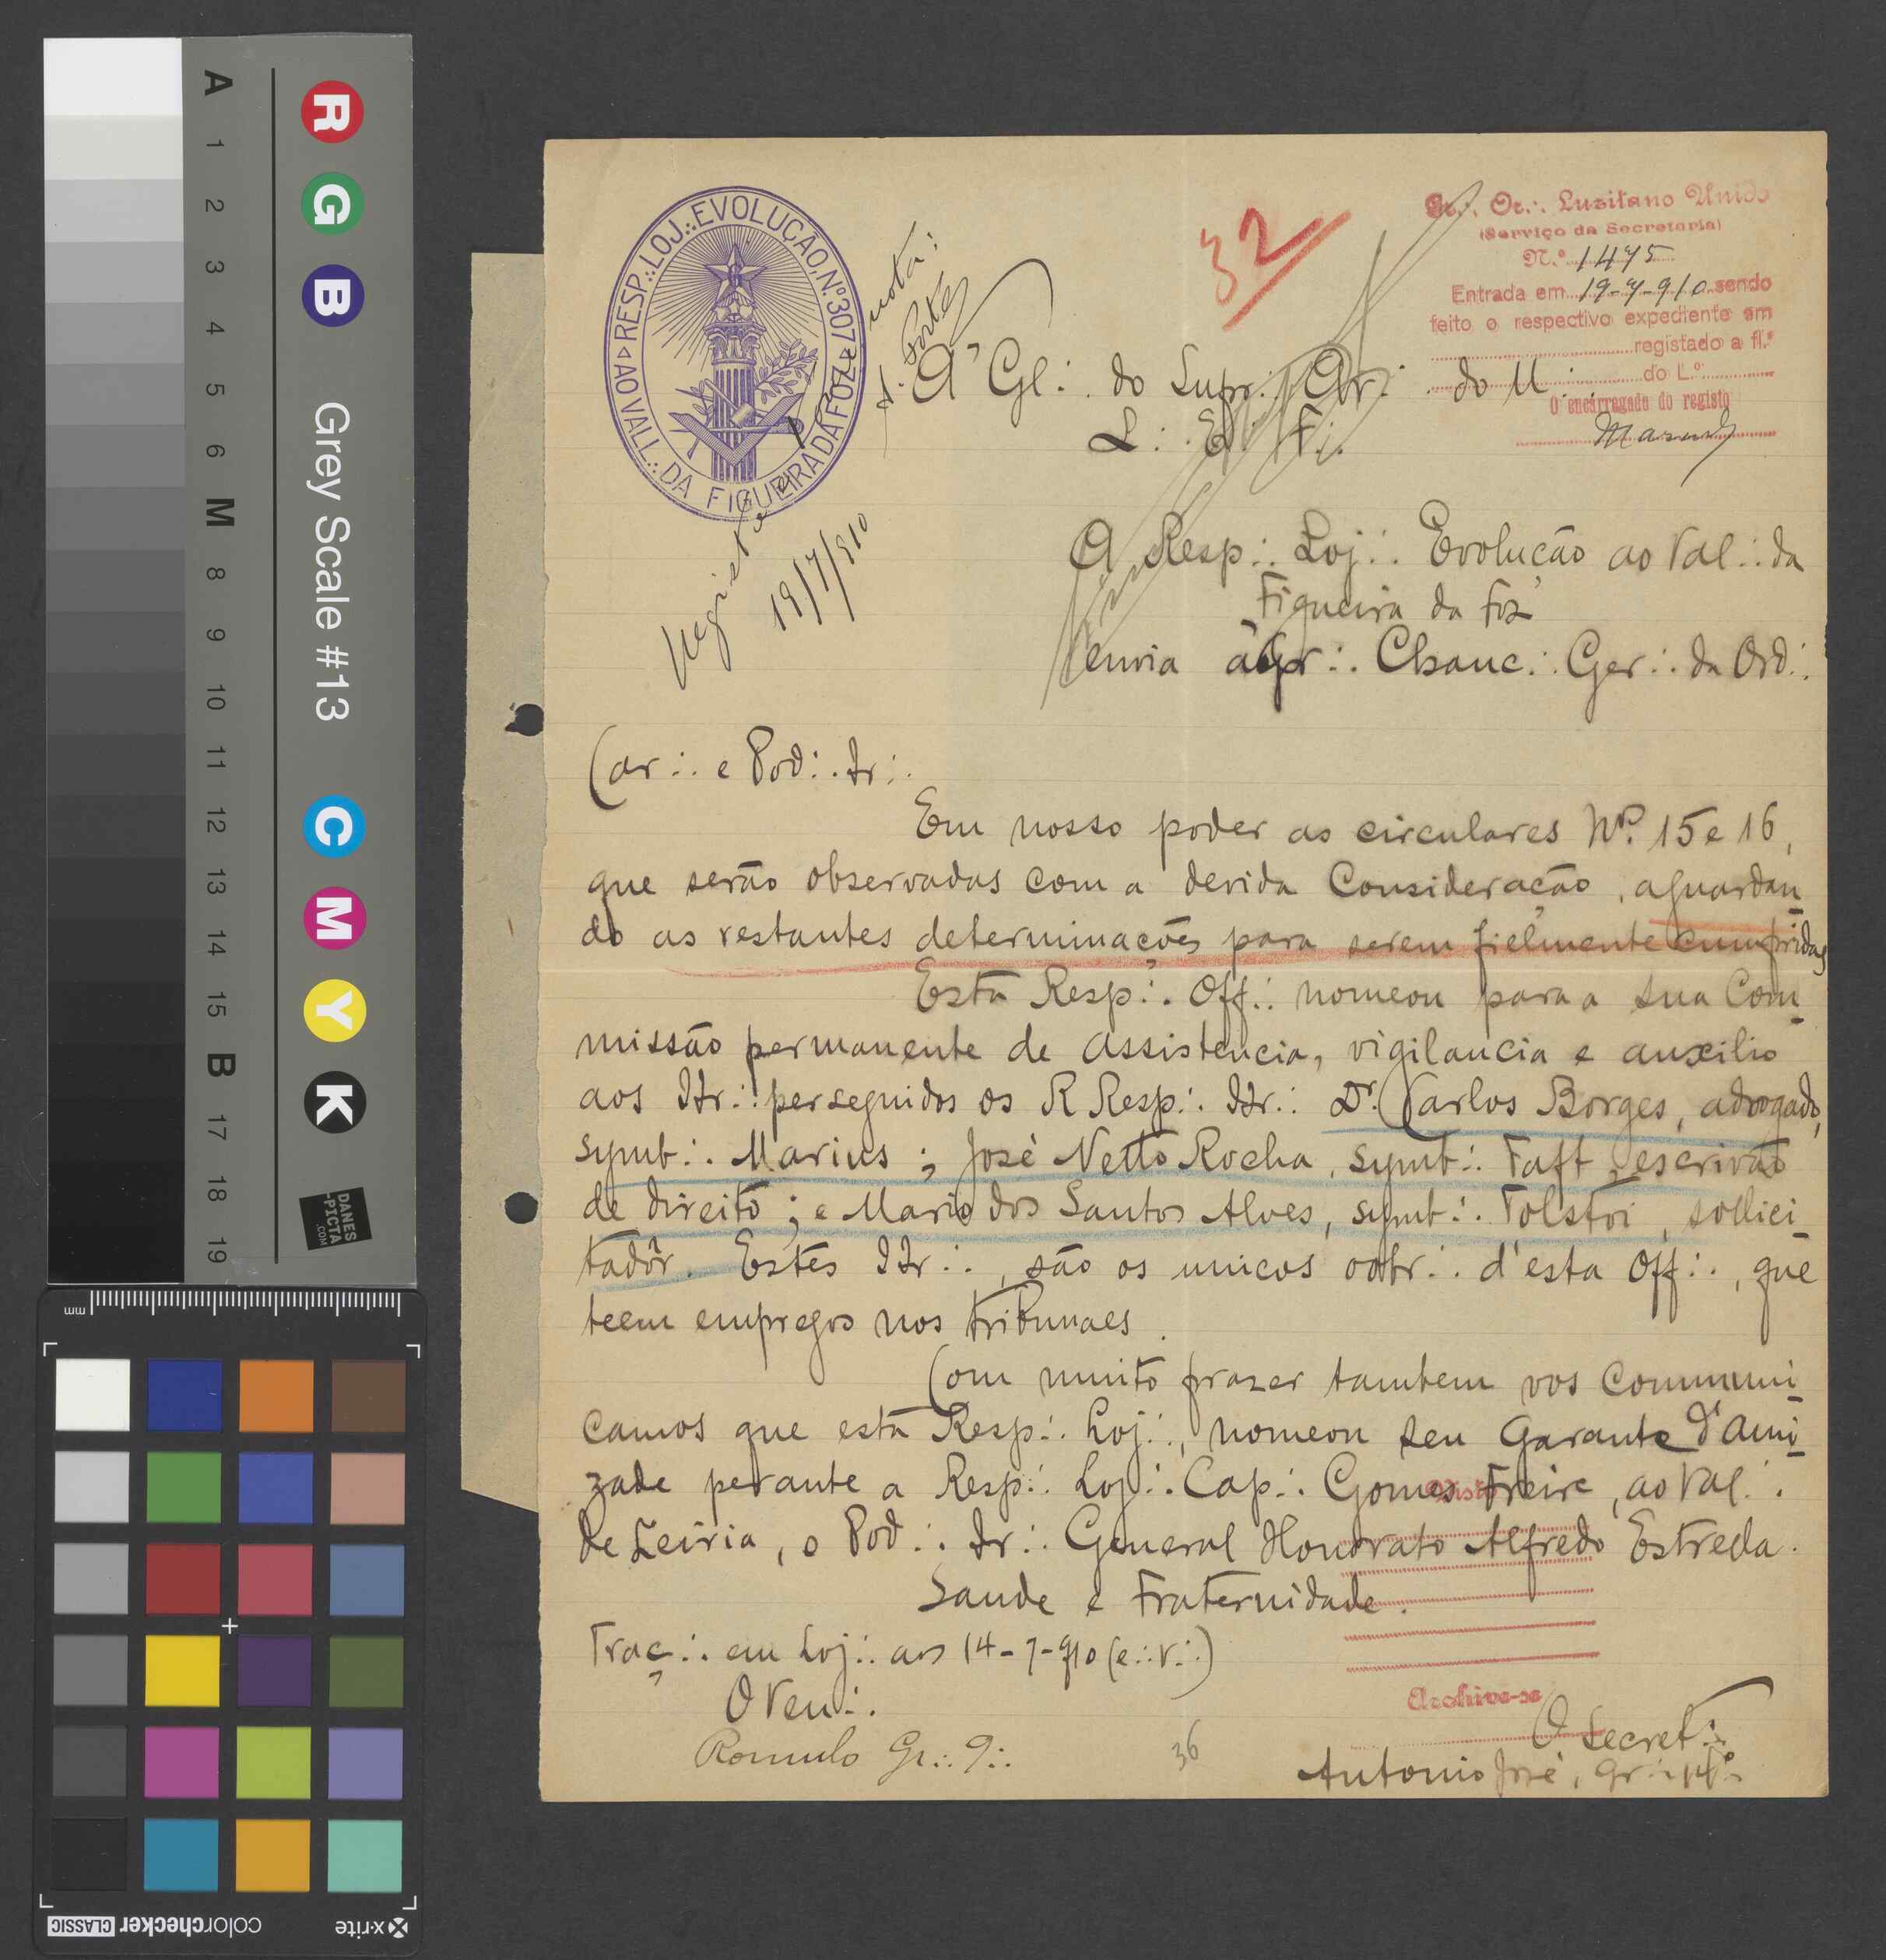 RESP∴ LOJ∴ EVOLUÇÃO, Nº 307
AO VALL∴ DA FIGUEIRA DA FOZ
32
Gr∴ Or∴ Lusitano Unido
(Serviço da Secretaria)
N.º 1475
Entrada em 19-7-910 sendo
feito o respectivo expediente em
registado a fl.ª
do L.º
O encarregado do registo
nota:
Registe
19/7/910
A' Gl∴ do Supr∴ Ar∴ do U∴
L∴ E∴ F∴
A Resp∴ Loj∴ Evolução ao Val∴ da
Figueira da Foz
envia á Gr∴ Chanc∴ Ger∴ da Ord∴
Car∴ e Pod∴ Ir∴
Em nosso poder as circulares Nº 15 e 16,
que serão observadas com a devida consideração, aguardan-
do as restantes determinações para serem fielmente cumpridas
Esta Resp∴ Off∴ nomeou para a sua Com-
missão permanente de assistencia, vigilancia e auxilio
aos IIr∴ perseguidos os R Resp∴ IIr∴ Dr. Carlos Borges, advogado,
symb∴ Marius; José Netto Rocha, symb∴ Taft, escrivão
de direito; e Mario dos Santos Alves, symb∴ Tolstoi, sollici-
tadôr. Estes IIr∴, são os unicos oobr∴ d'esta Off∴, que
teem empregos nos tribunaes.
Com muito prazer tambem vos communi-
camos que esta Resp∴ Loj∴, nomeou seu Garante d'ami-
zade perante a Resp∴ Loj∴ Cap∴ Gomes Freire, ao Val∴
de Leiria, o Pod∴ Ir∴ General Honorato Alfredo Estrella.
Saude e Fraternidade.
Traç∴ em Loj∴ aos 14-7-910 (e∴ v∴)
O Ven∴
Romulo Gr∴ 9∴
36
Visto
Archive-se
O Secret∴
Antonio José, gr∴ 14º∴
Grey Scale #13
A 1 2 3 4 5 6 M 8 9 10 11 12 13 14 15 B 17 18 19
R G B C M Y K
DANES
-PICTA
.COM
mm
x-rite
colorchecker CLASSIC